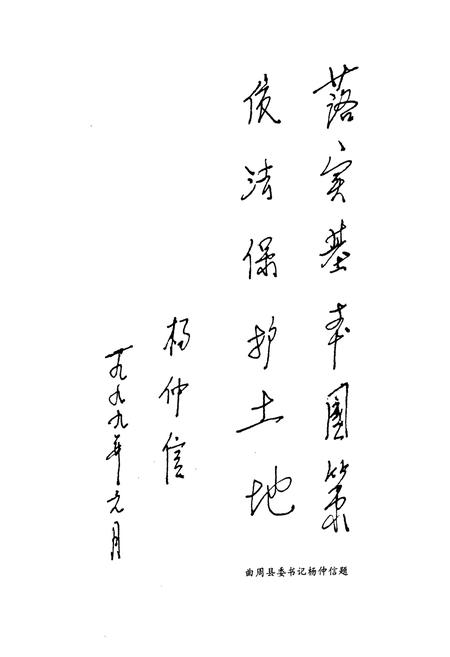 落实基本国策
依法保护土地
杨仲信
一九九九年元月
曲周县委书记杨仲信题